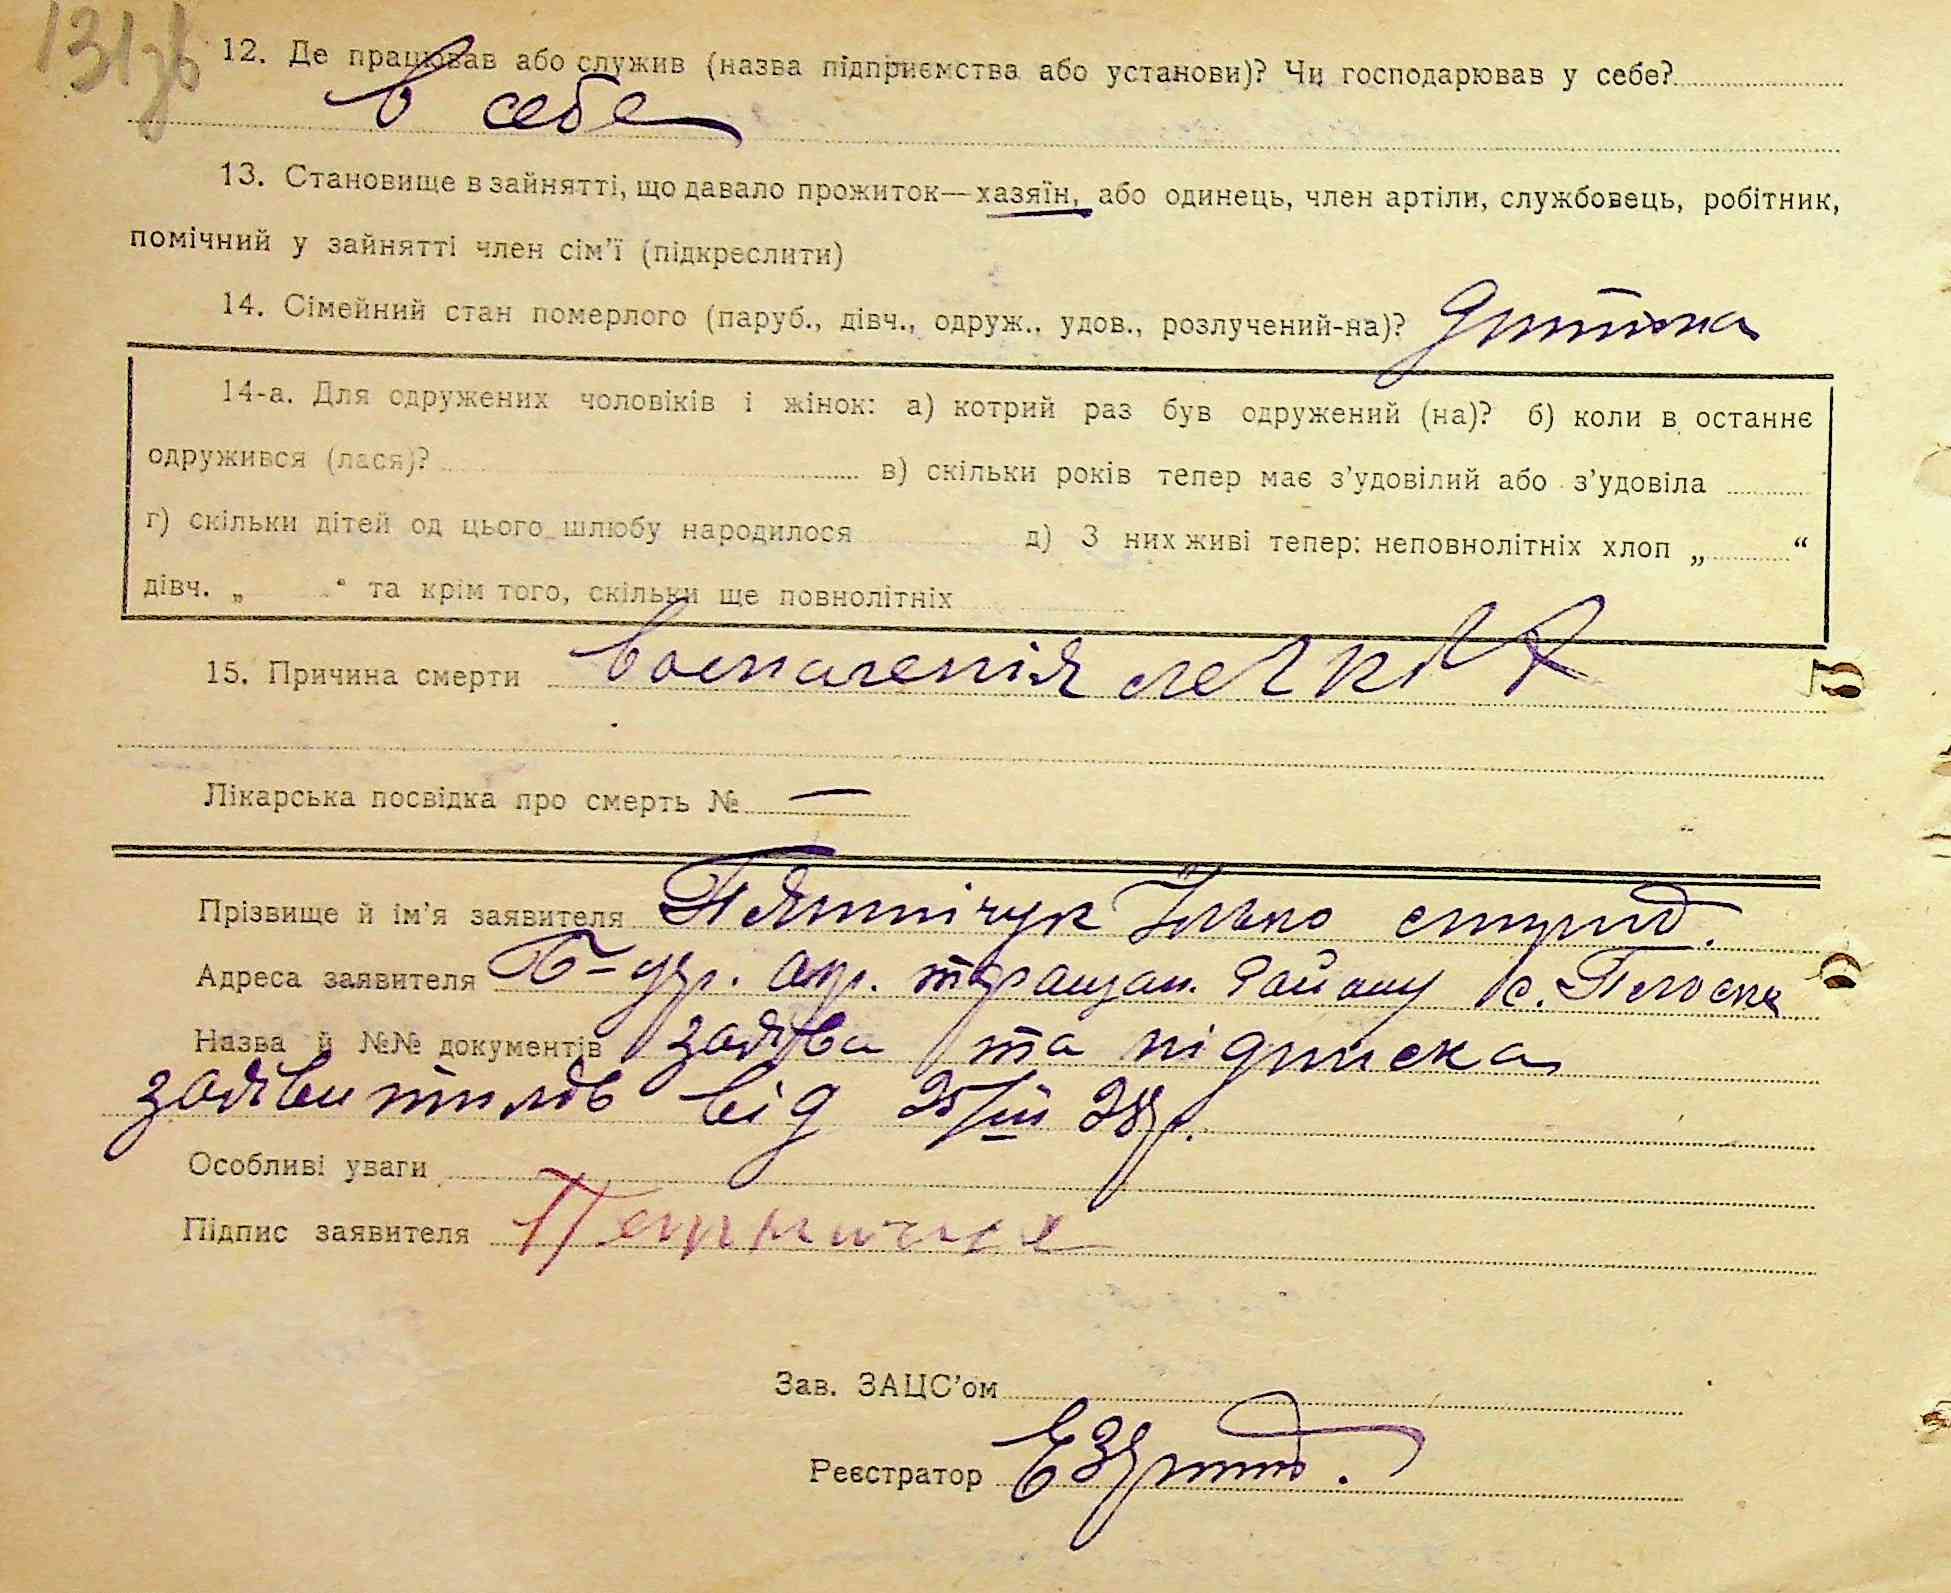 131зв
12. Де працював або служив (назва підприємства або установи)? Чи господарював у себе?
в себе
13. Становище в зайнятті, що давало прожиток—хазяїн, або одинець, член артіли, службовець, робітник,
помічний у зайнятті член сім'ї (підкреслити)
14. Сімейний стан померлого (паруб., дівч., одруж., удов., розлучений-на)? дитина
14-а. Для одружених чоловіків і жінок: а) котрий раз був одружений (на)? б) коли в останнє
одружився (лася)? в) скільки років тепер має з'удовілий або з'удовіла
г) скільки дітей од цього шлюбу народилося д) З них живі тепер: неповнолітніх хлоп „ “
дівч. „ “ та крім того, скільки ще повнолітніх
15. Причина смерти воспаленія легких
Лікарська посвідка про смерть № —
Прізвище й ім'я заявителя
Адреса заявителя Б-цер. окр. таращан. району с.
Назва й №№ документів заява та підписка
заявителів від 25/III 28р.
Особливі уваги
Підпис заявителя
Зав. ЗАЦС'ом
Реєстратор